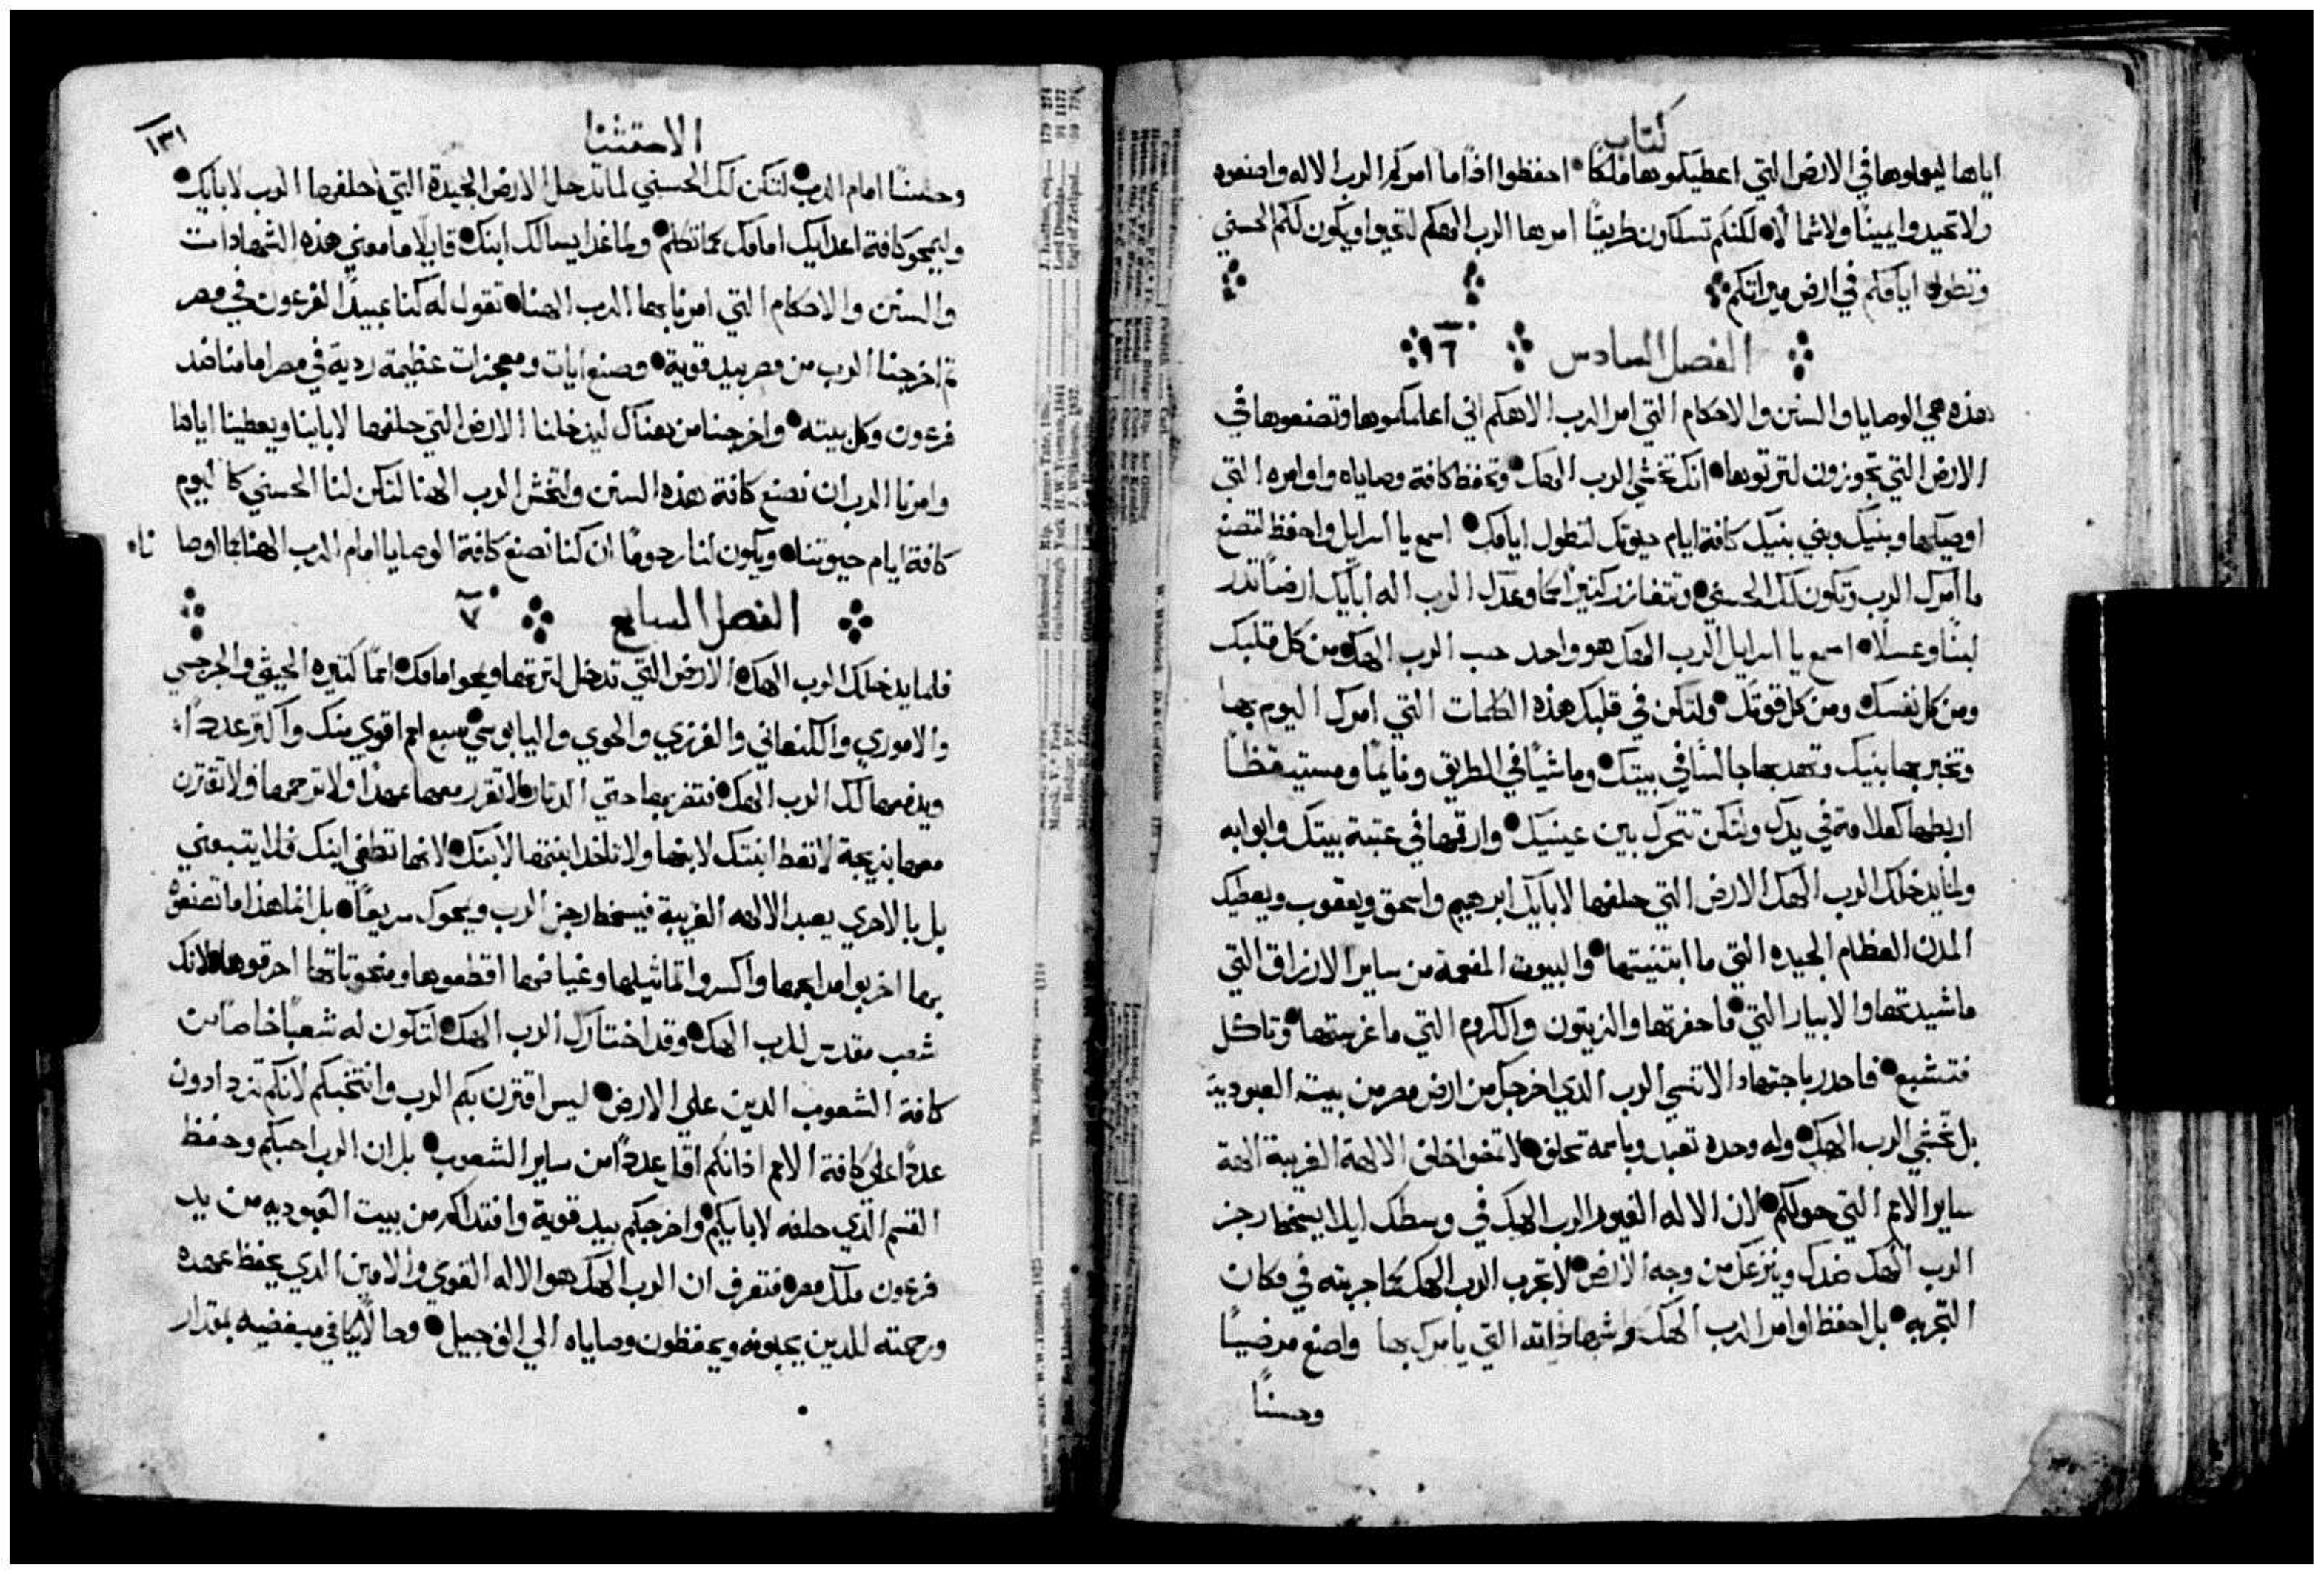 كتاب
اياها ليعملوها في الارض التي اعطيكموها ملكًا احفظوا اذًا ما امركم الرب الاله واصنعوه
ولا تحيدوا يمينًا ولا شمالًا لكنكم تسلكون طريقًا امرها الرب الهكم لتحيوا ويكون لكم الحسني
وتطول ايامكم في ارض ميراتكم
الفصل السادس ٦
هذه هي الوصايا والسنن والاحكام التي امر الرب الاهكم اني اعلمكموها وتصنعوها في
الارض التي تجوزون لترتوها انك تخشي الرب الهك وتحفظ كافة وصاياه واوامره التي
اوصيكها وبنيك وبني بنيك كافة ايام حيوتك لتطول ايامك اسمع يا اسرايل واحفظ لتصنع
ما امرك الرب وتكون لك الحسني وتتفازر كتيرًا كما وعدك الرب اله ابايك ارضًا تدر
لبنًا وعسلًا اسمع يا اسرايل الرب الهك هو واحد حب الرب الهك من كل قلبك
ومن كل نفسك ومن كل قوتك ولتكن في قلبك هذه الكلمات التي امرك اليوم بها
وتخبر بها بنيك وتهد بها جالسًا في بيتك وماشيًا في الطريق ونايمًا ومستيقظًا
اربطها كعلامة في يدك ولتكن تتحرك بين عينيك وارقمها في عتبة بيتك وابوابه
ولما يدخلك الرب الهك الارض التي حلفها لابايك ابرهيم واسحق ويعقوب ويعطيك
المدن العظام الجيده التي ما ابتنيتها والبيوت المفعمة من ساير الارزاق التي
ما شيدتها والابيار التي ما حفرتها والزيتون والكروم التي ما غرستها وتاكل
فتشبع فاحدر باجتهاد الا تنسي الرب الدي اخرجك من ارض مصر من بيت العبودية
بل تخشي الرب الهك وله وحده تعبد وباسمه تحلف لا تمضوا خلف الالهة الغريبة الهة
ساير الامم التي حولكم لان الاله الغيور الرب الهك في وسطك ليلا يسخط رجز
الرب الهك ضدك وينزعك من وجه الارض لا تجرب الرب الهك كما جربته في مكان
التجربه بل احفظ اوامر الرب الهك وشهاداته التي يامرك بها واصنع مرضيًا
وحسنًا
الاستتنا
١٣١
وحسنًا امام الرب لتكن لك الحسني لما تدخل الارض الجيدة التي احلفها الرب لابايك
وليمحو كافة اعدايك امامك كما تكلم ولما غدًا يسالك ابنك قايلًا ما معني هذه الشهادات
والسنن والاحكام التي امرنا بها الرب الهنا تقول له كنا عبيدًا لفرعون في مصر
تم اخرجنا الرب من مصر بيد قوية وصنع ايات ومعجزات عظيمة ردية في مصر امامنا ضد
فرعون وكل بيته واخرجنا من هناك ليدخلنا الارض التي حلفها لابينا ويعطينا اياها
وامرنا الرب ان نصنع كافة هذه السنن ولنخش الرب الهنا لتكن لنا الحسني كاليوم
كافة ايام حيوتنا ويكون لنا رحومًا ان كنا نصنع كافة الوصايا امام الرب الهنا كما اوصانا
الفصل السابع ٧
فلما يدخلك الرب الهك الارض التي تدخل لترتها ويمحو امامك اممًا كتيره الحيثي والجرجسي
والاموري والكنعاني والفرزي والحوي واليابوسي سبع امم اقوي منك واكتر عددًا
ويدفعها لك الرب الهك فتضربها حتي الدتار لا تقرر معها عهدًا ولا ترحمها ولا تقترن
معها بزيجة لا تعط ابنتك لابنها ولا تاخد ابنتها لابنك لانها تطغي ابنك فلا يتبعني
بل بالاحري يعبد الالهه الغريبة فيسخط رجز الرب ويمحوك سريعًا بل انما هذا ما تصنعوه
بها اخربوا مدابحها واكسروا تماتيلها وغياضها اقطعوها ومنحوتاتها احرقوها لانك
شعب مقدس للرب الهك وقد اختارك الرب الهك لتكون له شعبًا خاصًا من
كافة الشعوب الدين علي الارض ليس اقترن بكم الرب وانتخبكم لانكم تزدادون
عددًا علي كافة الامم اذ انكم اقل عددًا من ساير الشعوب بل ان الرب احبكم وحفظ
القسم الذي حلفه لابايكم واخرجكم بيد قوية وافتداكم من بيت العبوديه من يد
فرعون ملك مصر فتعرف ان الرب الهك هو الاله القوي والامين الدي يحفظ عهده
ورحمته للدين يحبونه ويحفظون وصاياه الي الف جيل وحالًا يكافي مبغضيه بمقدار